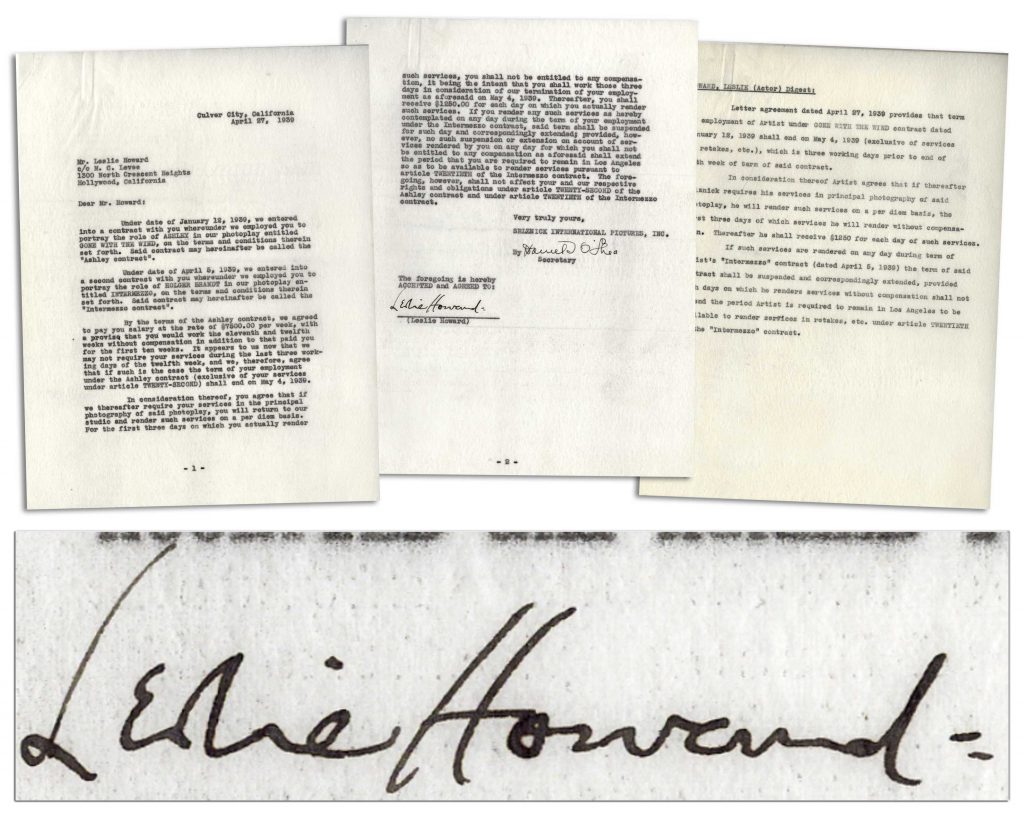 Culver City, California
April 27, 1939
Mr. Leslie Howard
c/o M. C. Levee
1300 North Crescent Heights
Hollywood, California
Dear Mr. Howard:
Under date of January 12, 1939, we entered
into a contract with you whereunder we employed you to
portray the role of ASHLEY in our photoplay entitled
GONE WITH THE WIND, on the terms and conditions therein
set forth. Said contract may hereinafter be called the
"Ashley contract".
Under date of April 5, 1939, we entered into
a second contract with you whereunder we employed you to
portray the role of HOLGER BRANDT in our photoplay en-
titled INTERMEZZO, on the terms and conditions therein
set forth. Said contract may hereinafter be called the
"Intermezzo contract".
By the terms of the Ashley contract, we agreed
to pay you salary at the rate of $7500.00 per week, with
a proviso that you would work the eleventh and twelfth
weeks without compensation in addition to that paid you
for the first ten weeks. It appears to us now that we
may not require your services during the last three work-
ing days of the twelfth week, and we, therefore, agree
that if such is the case the term of your employment
under the Ashley contract (exclusive of your services
under article TWENTY-SECOND) shall end on May 4, 1939.
In consideration thereof, you agree that if
we thereafter require your services in the principal
photography of said photoplay, you will return to our
studio and render such services on a per diem basis.
For the first three days on which you actually render
- 1 -
such services, you shall not be entitled to any compensa-
tion, it being the intent that you shall work those three
days in consideration of our termination of your employ-
ment as aforesaid on May 4, 1939. Thereafter, you shall
receive $1250.00 for each day on which you actually render
such services. If you render any such services as hereby
contemplated on any day during the term of your employment
under the Intermezzo contract, said term shall be suspended
for such day and correspondingly extended; provided, how-
ever, no such suspension or extension on account of ser-
vices rendered by you on any day for which you shall not
be entitled to any compensation as aforesaid shall extend
the period that you are required to remain in Los Angeles
so as to be available to render services pursuant to
article TWENTIETH of the Intermezzo contract. The fore-
going, however, shall not affect your and our respective
rights and obligations under article TWENTY-SECOND of the
Ashley contract and under article TWENTIETH of the Intermezzo
contract.
Very truly yours,
SELZNICK INTERNATIONAL PICTURES, INC.
By Daniel O'Shea
Secretary
The foregoing is hereby
ACCEPTED and AGREED TO:
Leslie Howard
(Leslie Howard)
- 2 -
WARD, LESLIE (Actor) Digest:
Letter agreement dated April 27, 1939 provides that term
employment of Artist under GONE WITH THE WIND contract dated
nuary 12, 1939 shall end on May 4, 1939 (exclusive of services
retakes, etc.), which is three working days prior to end of
th week of term of said contract.
In consideration thereof Artist agrees that if thereafter
znick requires his services in principal photography of said
toplay, he will render such services on a per diem basis, the
st three days of which services he will render without compensa-
n. Thereafter he shall receive $1250 for each day of such services.
If such services are rendered on any day during term of
ist's "Intermezzo" contract (dated April 5, 1939) the term of said
tract shall be suspended and correspondingly extended, provided
h days on which he renders services without compensation shall not
end the period Artist is required to remain in Los Angeles to be
ilable to render services in retakes, etc. under article TWENTIETH
the "Intermezzo" contract.
Leslie Howard